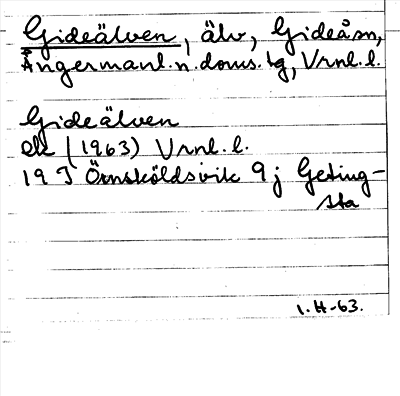 Gideälven, älv, Gideå sn,
Ångermanl. n. doms. tg, Vrnl. l.
Gideälven
ek (1963) Vrnl. l.
19 I Örnsköldsvik 9 j Geting-
sta
1. H-63.